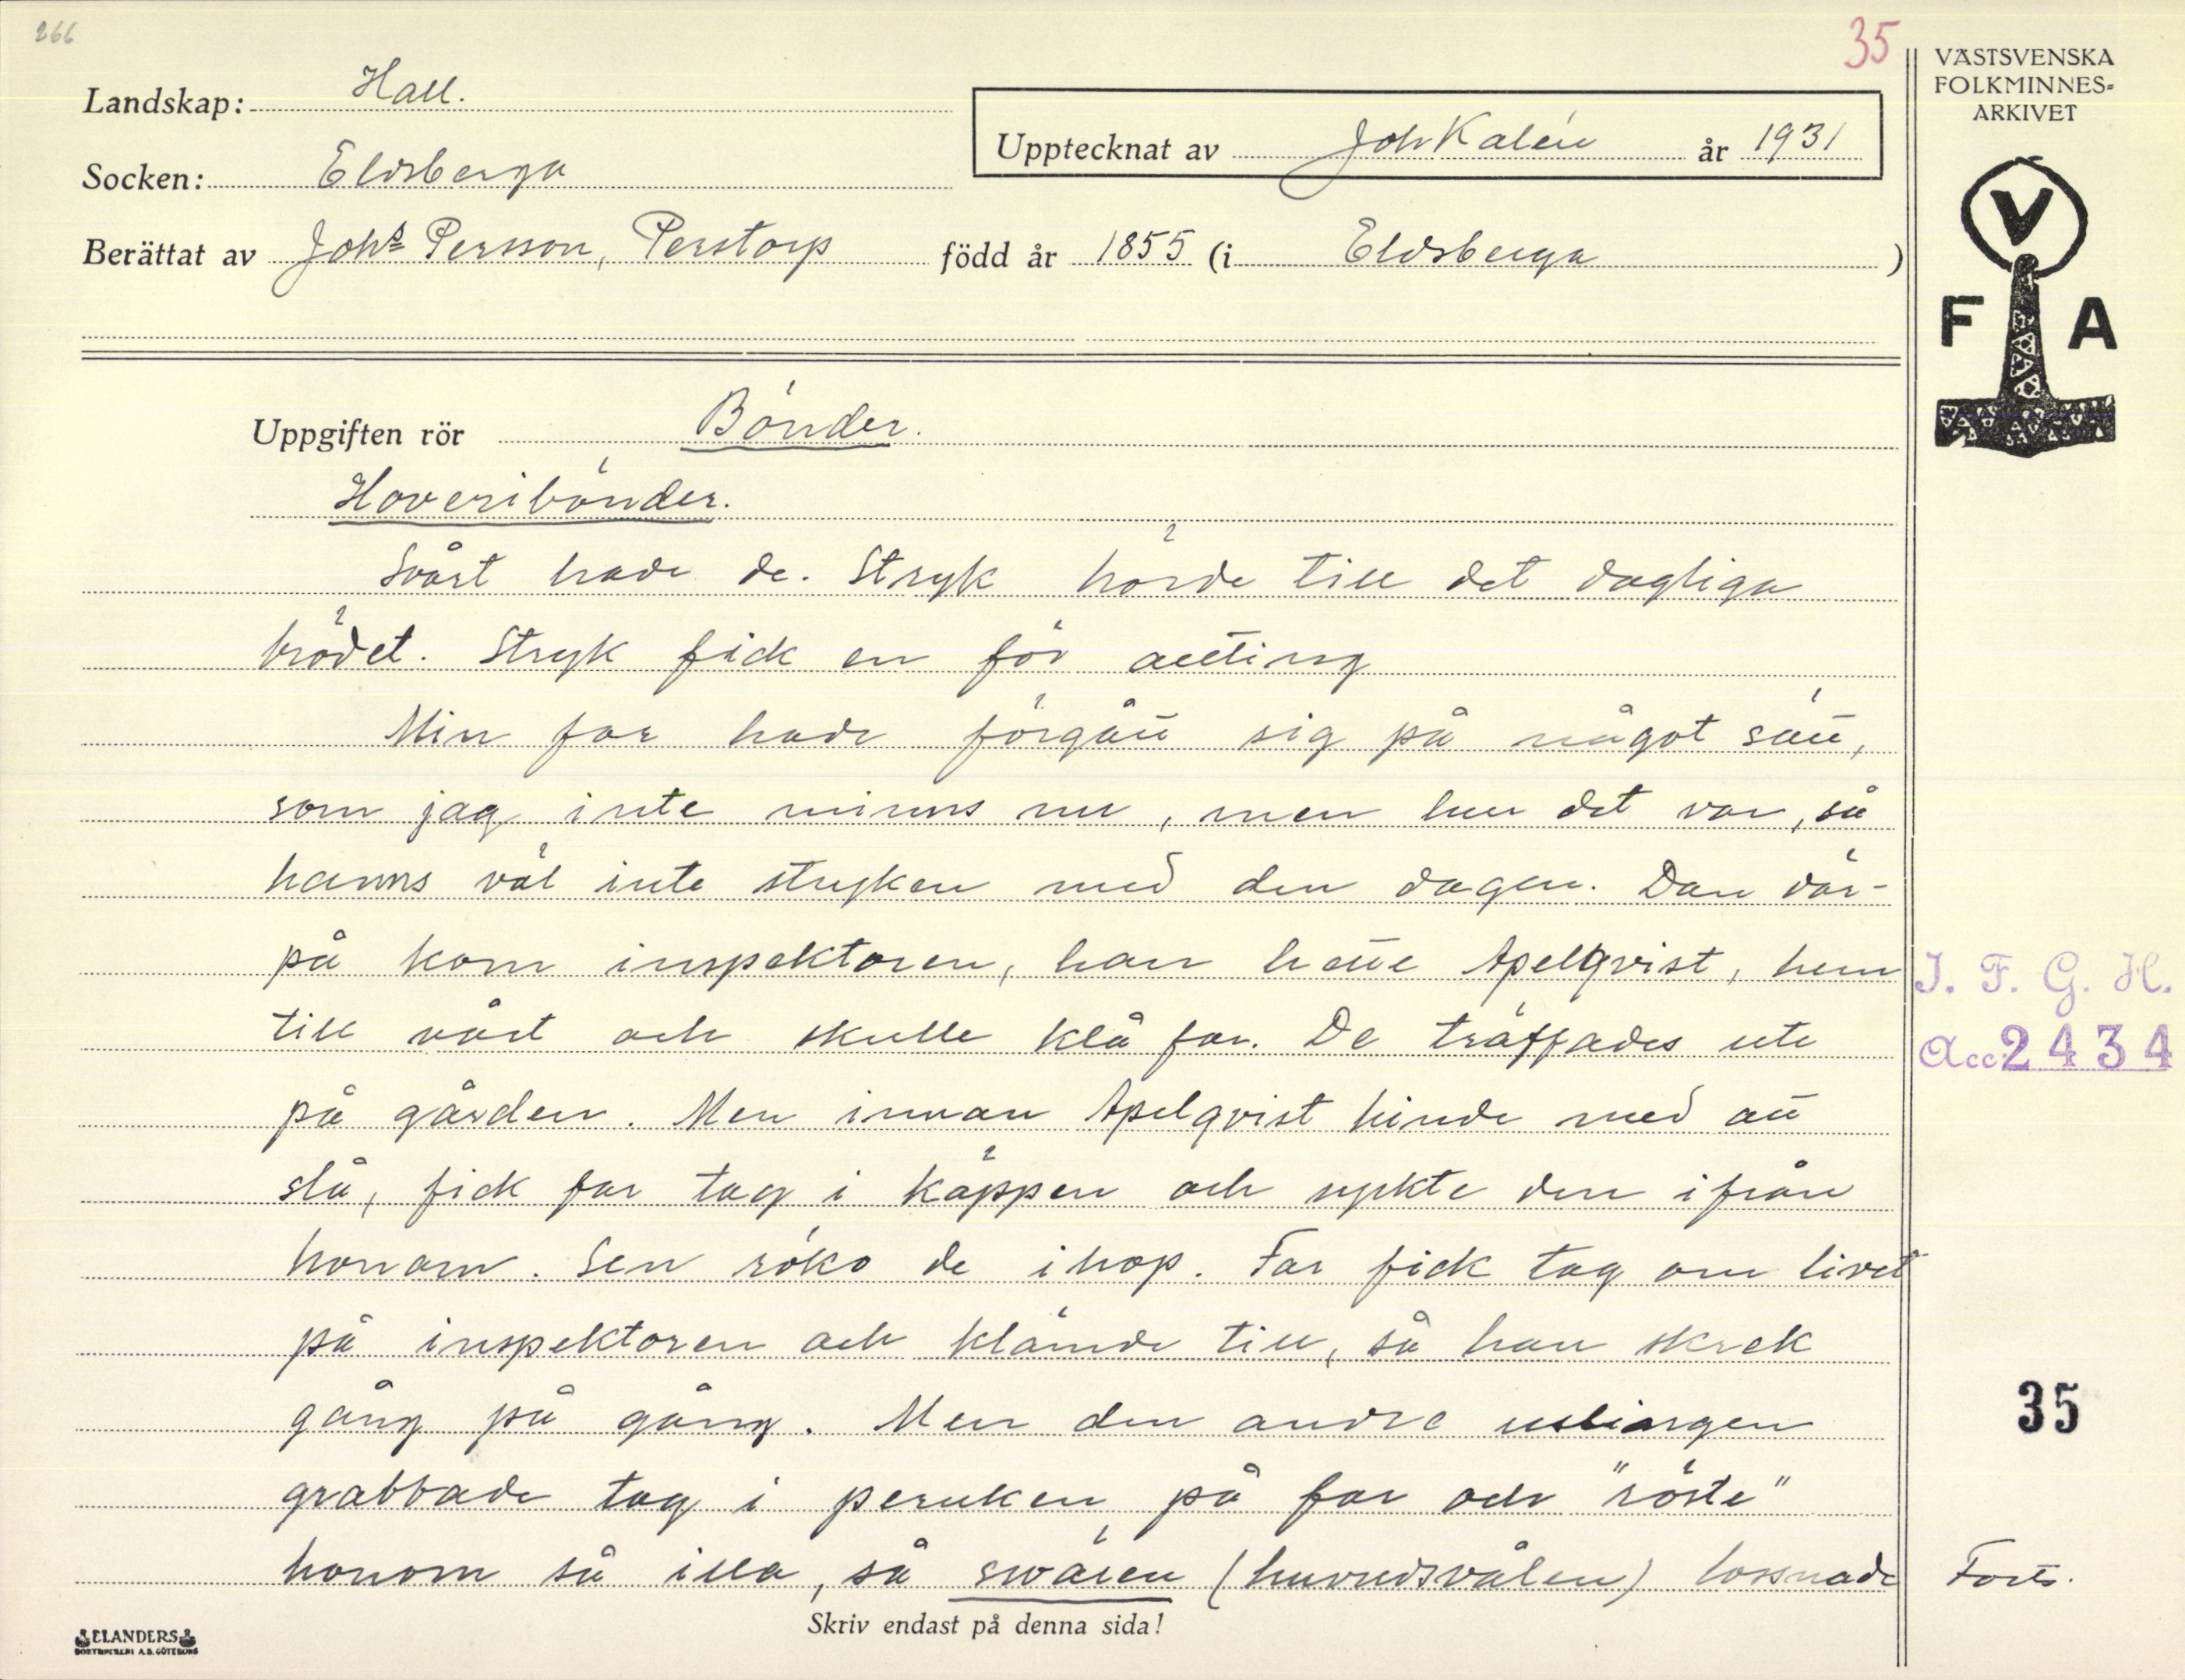 266
35
Landskap: Hall.
Socken: Eldsberga
Upptecknat av Joh Kalén år 1931
Berättat av Johs Persson, Perstorp född år 1855 (i Eldsberga )
VÄSTSVENSKA
FOLKMINNES-
ARKIVET
V
F A
Uppgiften rör Bönder.
Hoveribönder.
Svårt hade de. Stryk hörde till det dagliga
brödet. Stryk fick en för allting
Min far hade förgått sig på något sätt,
som jag inte minns nu, men hur det var, så
hanns väl inte stryken med den dagen. Dan där-
på kom inspektoren, han hette Apelqvist, hem
till vårt och skulle klå far. De träffades ute
på gården. Men innan Apelqvist hinde med att
slå, fick far tag i käppen och ryckte den ifrån
honom. Sen röko de ihop. Far fick tag om livet
på inspektoren och klämde till, så han skrek
gång på gång. Men den andre uslingen
grabbade tag i peruken på far och "röste"
honom så illa, så (huvudsvålen) lossnade
J. F. G. H.
Acc: 2434
35
Forts.
Skriv endast på denna sida!
ELANDERS
BOKTRYCKERI A.B. GÖTEBORG